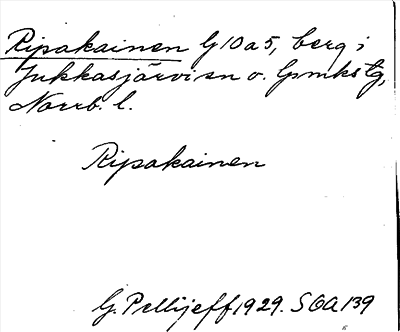 Ripakainen G 10 a 5, berg i
Jukkasjärvi sn o. lpmks tg,
Norrb. l.
Ripakainen
G. Pellijeff 1929. SOA 139